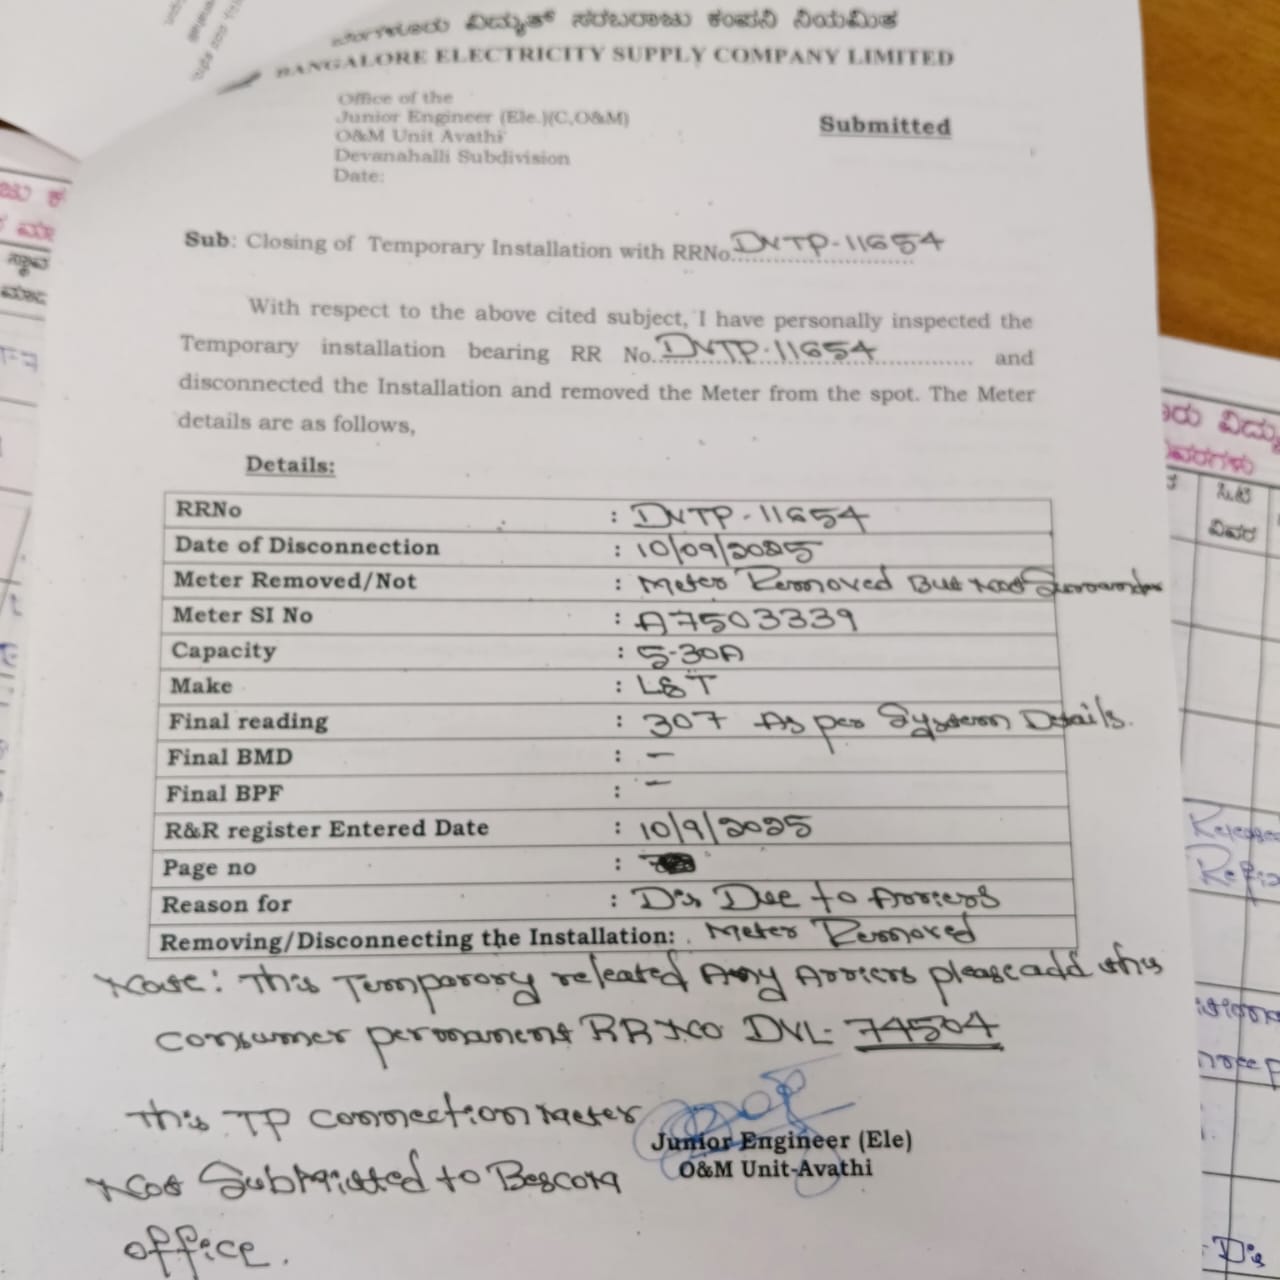 ವಿದ್ಯುತ್ ಸರಬರಾಜು ಕಂಪನಿ ನಿಯಮಿತ
BANGALORE ELECTRICITY SUPPLY COMPANY LIMITED
Office of the
Junior Engineer (Ele.)(C,O&M)
O&M Unit Avathi
Devanahalli Subdivision
Date:
Submitted
Sub: Closing of Temporary Installation with RRNo. DVTP-11654
With respect to the above cited subject, I have personally inspected the
Temporary installation bearing RR No. DVTP-11654 and
disconnected the Installation and removed the Meter from the spot. The Meter
details are as follows,
Details:
RRNo : DVTP-11654
Date of Disconnection : 10/09/2025
Meter Removed/Not : Meter Removed But Not
Meter SI No : A7503339
Capacity : 5-30A
Make : L&T
Final reading : 307 As per System Details.
Final BMD : —
Final BPF : —
R&R register Entered Date : 10/9/2025
Page no :
Reason for : Dis Due to Arriers
Removing/Disconnecting the Installation: Meter Removed
Note: This Temporory releated Any Arriers please add this
consumer permanent RR No DVL- 74504
This TP Connection Meter
Not Submitted to Bescom
office.
Junior Engineer (Ele)
O&M Unit-Avathi
ವಿವರಗಳು
ವಿವರ